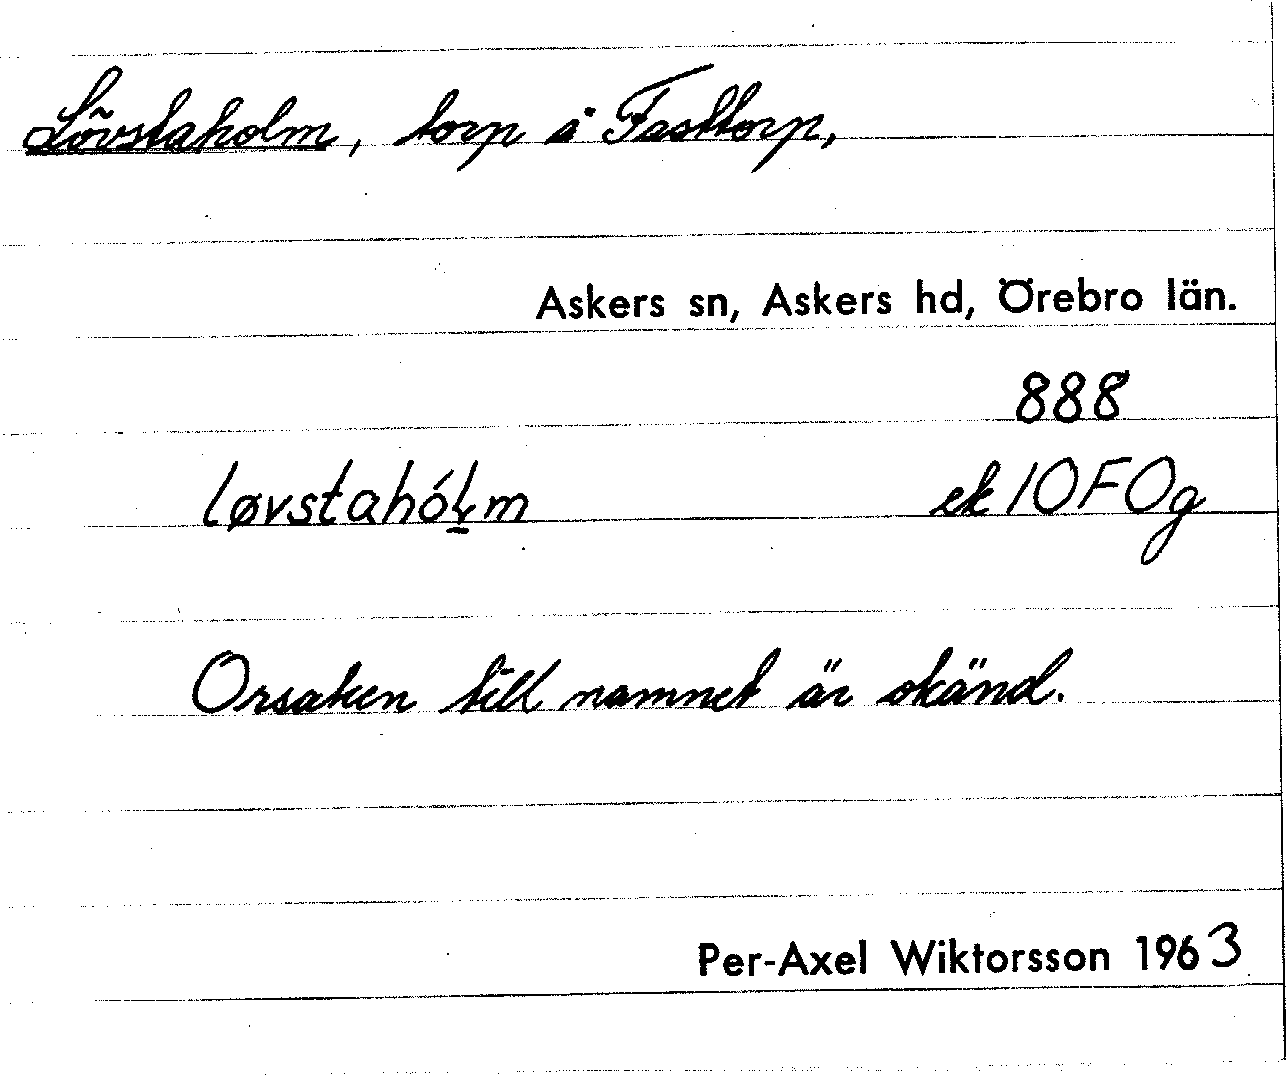 Lövstaholm, torp å Fasttorp,
Askers sn, Askers hd, Örebro län.
888
løvstahól̠m ek 10 F Og
Orsaken till namnet är okänd.
Per-Axel Wiktorsson 1963